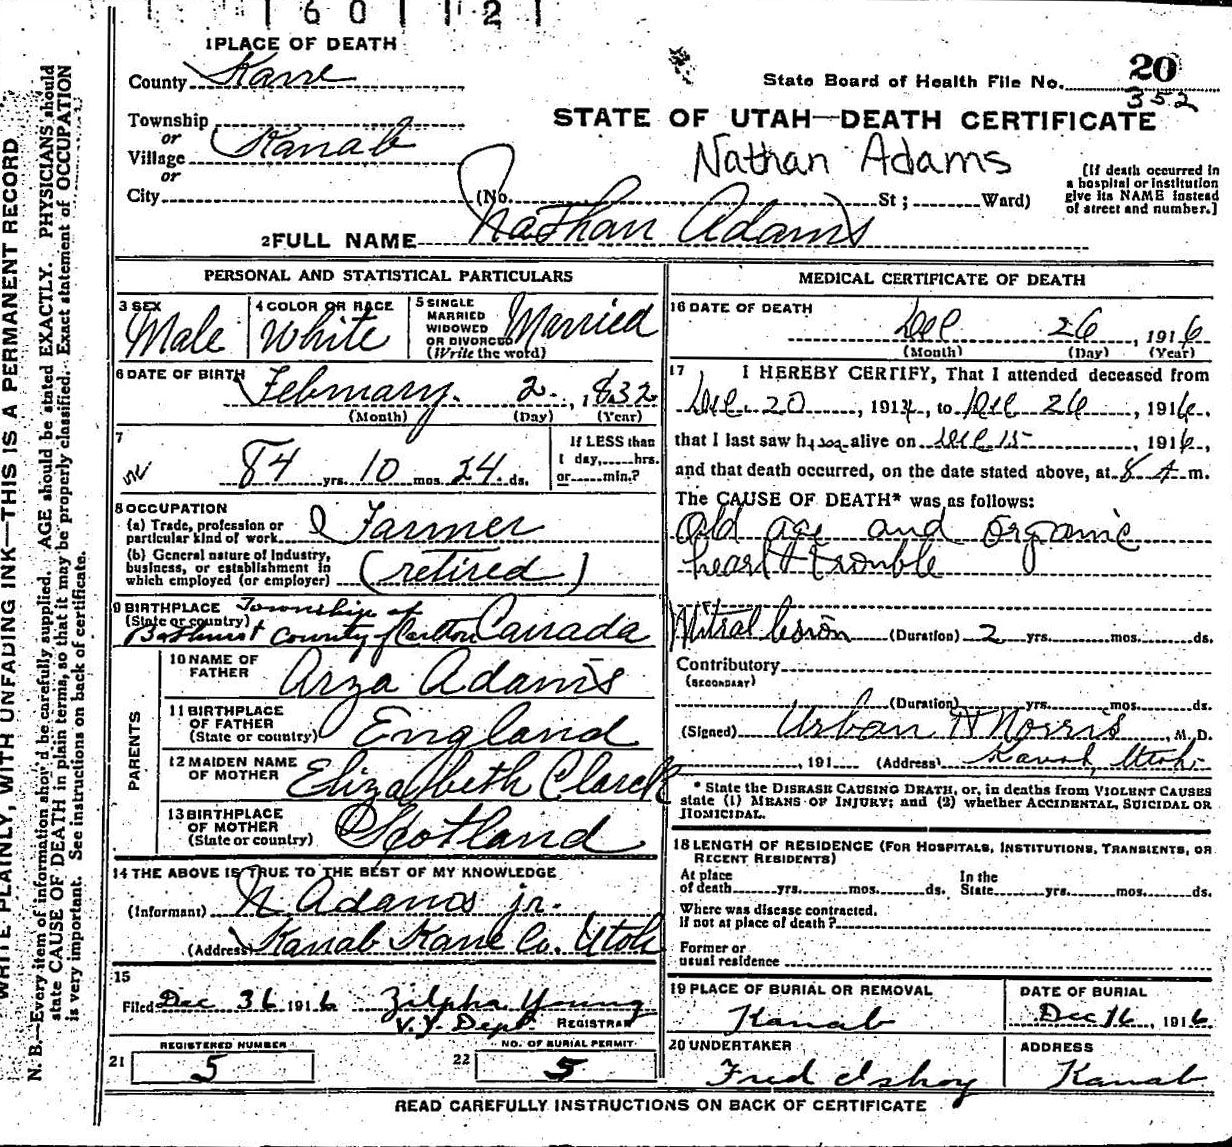 1 6 0 1 1 2 1
1 PLACE OF DEATH
County Kane
State Board of Health File No. 20
352
Township
or
Village Kanab
or
City
STATE OF UTAH—DEATH CERTIFICATE
Nathan Adams
(No. St ; Ward)
[If death occurred in a hospital or institution give its NAME instead of street and number.]
2 FULL NAME Nathan Adams
PERSONAL AND STATISTICAL PARTICULARS
3 SEX Male
4 COLOR OR RACE White
5 SINGLE MARRIED WIDOWED OR DIVORCED (Write the word) Married
6 DATE OF BIRTH February 2, 1832
(Month) (Day) (Year)
7
84 yrs. 10 mos. 24 ds.
If LESS than 1 day, hrs. or min.?
8 OCCUPATION
(a) Trade, profession or particular kind of work Farmer
(b) General nature of Industry, business, or establishment in which employed (or employer) (retired)
9 BIRTHPLACE (State or country) Township of Bathurst County of Carlton Canada
PARENTS
10 NAME OF FATHER Arza Adams
11 BIRTHPLACE OF FATHER (State or country) England
12 MAIDEN NAME OF MOTHER Elizabeth Clarck
13 BIRTHPLACE OF MOTHER (State or country) Scotland
14 THE ABOVE IS TRUE TO THE BEST OF MY KNOWLEDGE
(Informant) N Adams jr.
(Address) Kanab Kane Co. Utah
15
Filed Dec 36 1916 Zilpha Young
V.J. Dept. REGISTRAR
21 REGISTERED NUMBER 5
22 NO. OF BURIAL PERMIT 5
MEDICAL CERTIFICATE OF DEATH
16 DATE OF DEATH Dec 26, 1916
(Month) (Day) (Year)
17 I HEREBY CERTIFY, That I attended deceased from
Dec 20, 1914, to Dec 26, 1916,
that I last saw him alive on Dec 15, 1916,
and that death occurred, on the date stated above, at 8 A m.
The CAUSE OF DEATH* was as follows:
old age and organic
heart trouble
Mitral lesion (Duration) 2 yrs. mos. ds.
Contributory
(SECONDARY)
(Duration) yrs. mos. ds.
(Signed) Urban H Norris, M. D.
, 191 (Address) Kanab, Utah
* State the DISEASE CAUSING DEATH, or, in deaths from VIOLENT CAUSES
state (1) MEANS OF INJURY; and (2) whether ACCIDENTAL, SUICIDAL OR
HOMICIDAL.
18 LENGTH OF RESIDENCE (FOR HOSPITALS, INSTITUTIONS, TRANSIENTS, OR
RECENT RESIDENTS)
At place of death yrs. mos. ds. In the State yrs. mos. ds.
Where was disease contracted.
If not at place of death?
Former or
usual residence
19 PLACE OF BURIAL OR REMOVAL Kanab
DATE OF BURIAL Dec 16, 1916
20 UNDERTAKER Fred
ADDRESS Kanab
READ CAREFULLY INSTRUCTIONS ON BACK OF CERTIFICATE
WRITE PLAINLY, WITH UNFADING INK—THIS IS A PERMANENT RECORD
N. B.—Every item of information should be carefully supplied. AGE should be stated EXACTLY. PHYSICIANS should
state CAUSE OF DEATH in plain terms, so that it may be properly classified. Exact statement of OCCUPATION
is very important. See instructions on back of certificate.